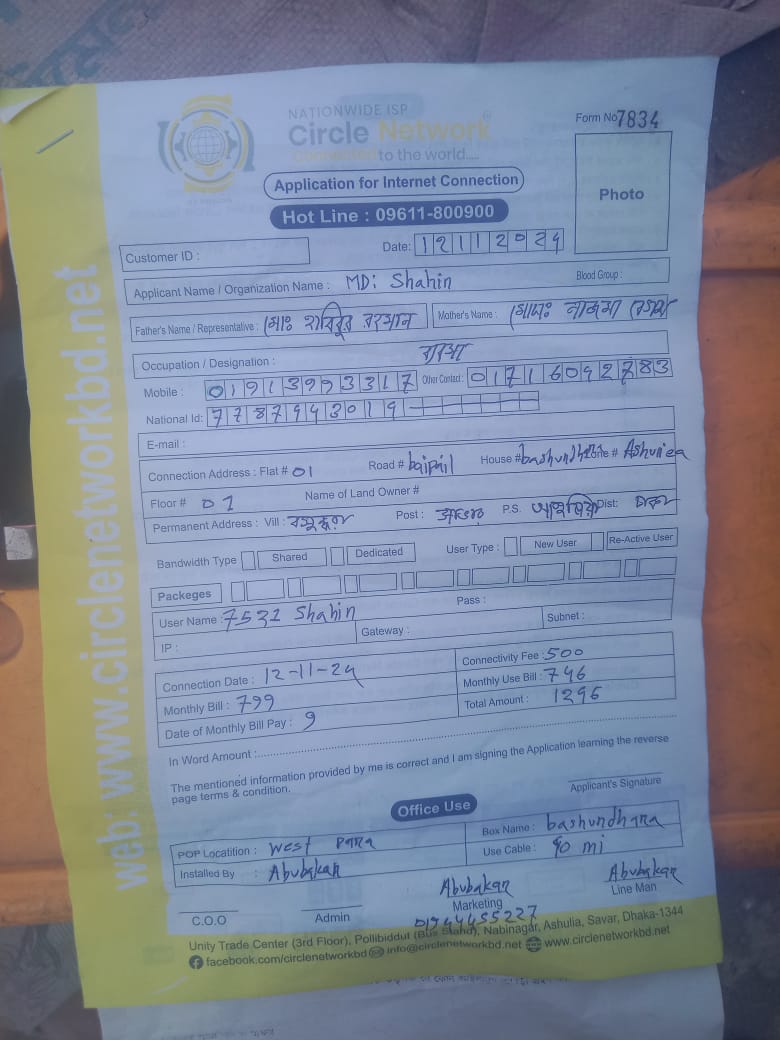 NATIONWIDE ISP
Circle Network
Connected to the world....
Form No 7834
Application for Internet Connection
Photo
Hot Line : 09611-800900
Customer ID :
Date: 12112024
Applicant Name / Organization Name : MD: Shahin
Blood Group :
Father's Name / Representative : মোঃ হাবিবুর রহমান
Mother's Name : মোসাঃ নাজমা বেগম
Occupation / Designation :
Mobile : 01913993317 Other Contact : 01716092783
National Id: 7787943019
E-mail :
Connection Address : Flat # 01 Road # baipail House # bashundhara Zone #
Floor # 01 Name of Land Owner #
Permanent Address : Vill : Post : P.S. Dist: ঢাকা
Bandwidth Type Shared Dedicated User Type : New User Re-Active User
Packeges
User Name : 7531 Shahin Pass :
IP : Gateway : Subnet :
Connection Date : 12-11-24 Connectivity Fee : 500
Monthly Bill : 799 Monthly Use Bill : 746
Date of Monthly Bill Pay : 9 Total Amount : 1246
In Word Amount :
The mentioned information provided by me is correct and I am signing the Application learning the reverse
page terms & condition.
Applicant's Signature
Office Use
POP Locatition : West Para Box Name : bashundhara
Installed By : Abubakar Use Cable : 90 mi
Abubakar Abubakar
C.O.O Admin Marketing Line Man
01944455227
Unity Trade Center (3rd Floor), Pollibiddul (Bus Stand), Nabinagar, Ashulia, Savar, Dhaka-1344
facebook.com/circlenetworkbd info@circlenetworkbd.net www.circlenetworkbd.net
web: www.circlenetworkbd.net